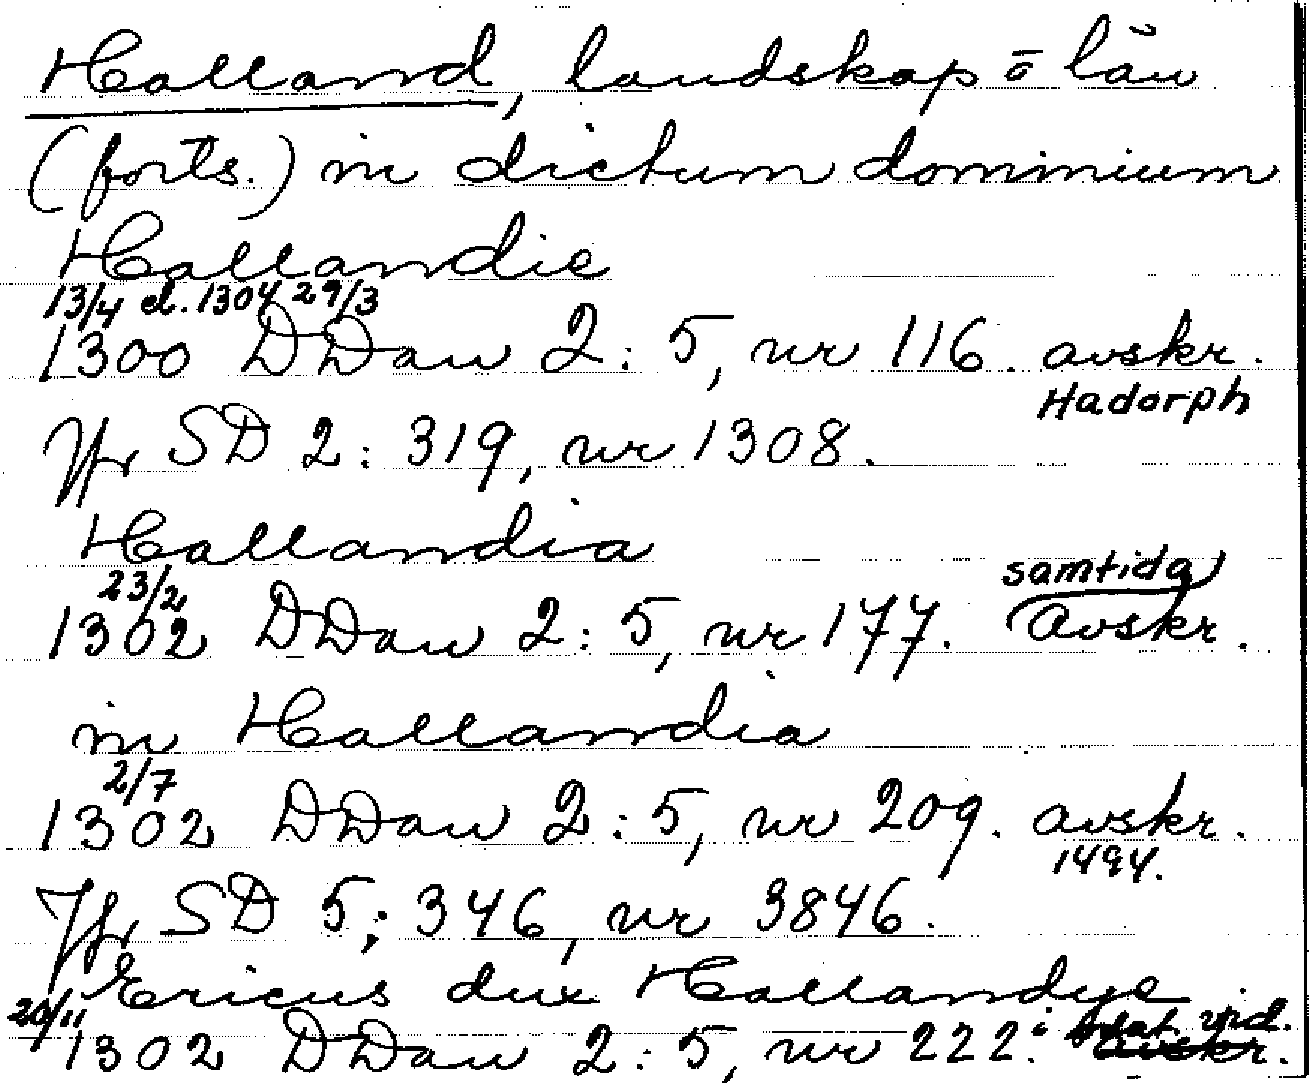 Halland, landskap o län
(forts.) in dictum dominium
Hallandie
13/4 el. 1304 29/3
1300 DDan 2:5, nr 116. avskr.
Hadorph
Jfr SD 2:319, nr 1308.
Hallandia
23/2 samtida
1302 DDan 2:5, nr 177. Avskr.
in Hallandia
2/7
1302 DDan 2:5, nr 209. avskr.
1494.
Jfr SD 5:346, nr 3846.
Ericus dux Hallandye
20/11 vid.
1302 DDan 2:5, nr 222. i avskr.